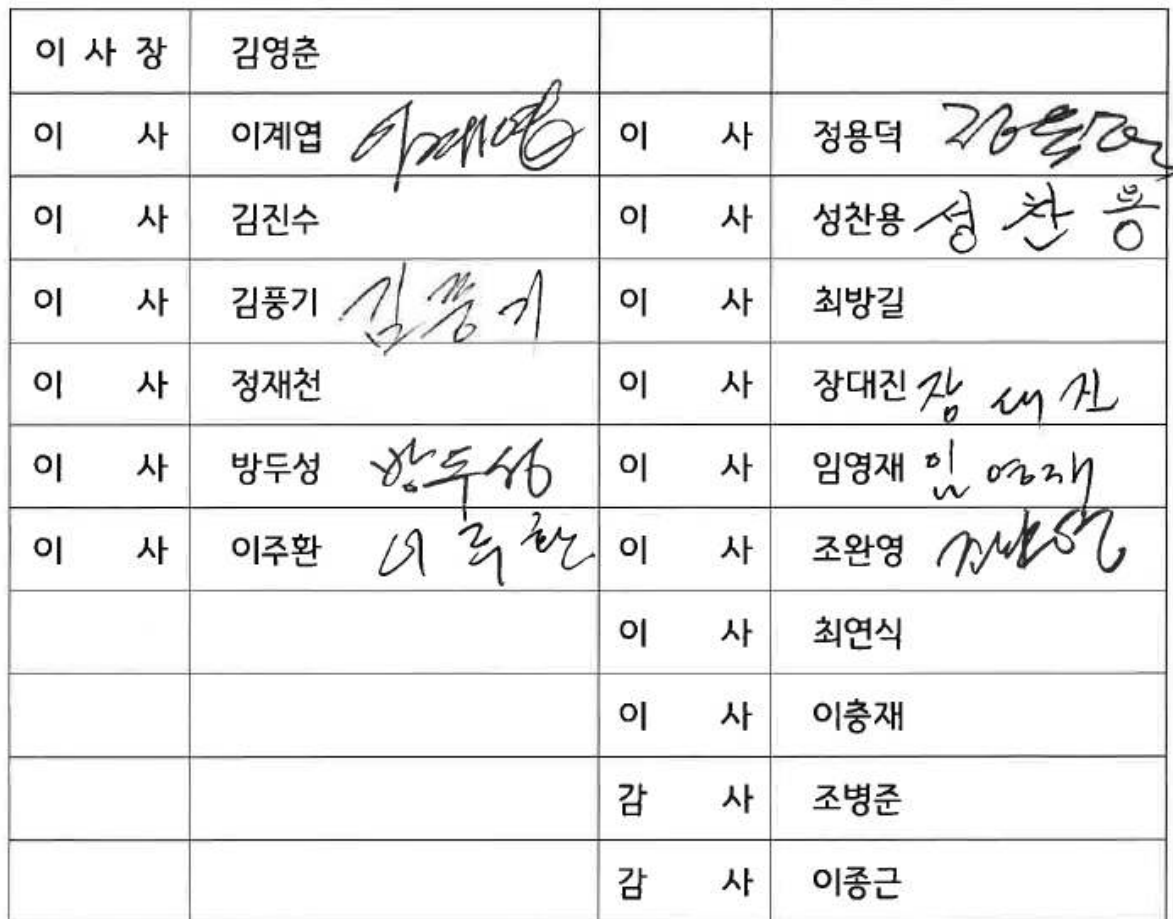 이 사 장 김영춘
이 사 이계엽 이계엽 이 사 정용덕 정용덕
이 사 김진수 이 사 성찬용 성찬용
이 사 김풍기 김풍기 이 사 최방길
이 사 정재천 이 사 장대진 장대진
이 사 방두성 방두성 이 사 임영재 임영재
이 사 이주환 이주환 이 사 조완영 조완영
이 사 최연식
이 사 이충재
감 사 조병준
감 사 이종근